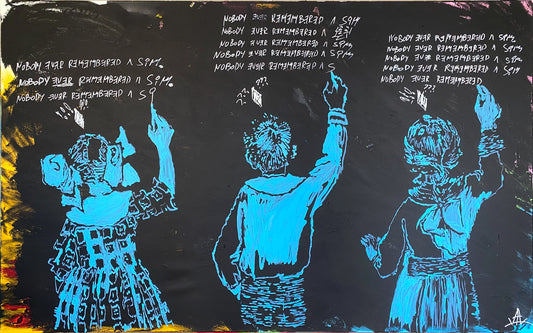 NOBODY EVER REMEMBERED A
NOBODY EVER REMEMBERED A
NOBODY EVER REMEMBERED A
NOBODY EVER REMEMBERED A
NOBODY EVER REMEMBERED A
NOBODY EVER REMEMBERED A
NOBODY EVER REMEMBERED A
NOBODY EVER REMEMBERED A S
???
NOBODY EVER REMEMBERED A
NOBODY EVER REMEMBERED A
NOBODY EVER REMEMBERED A
NOBODY EVER REMEMBERED A
NOBODY EVER REMEMBERED
???